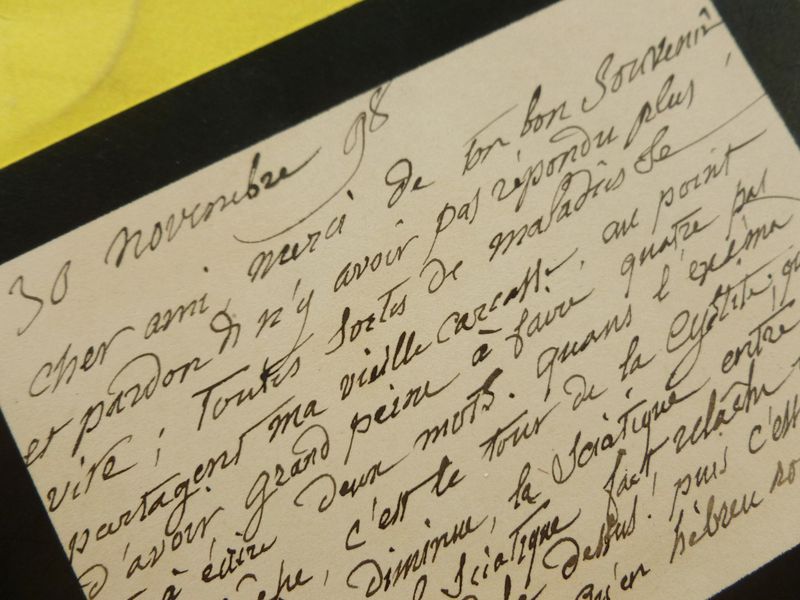 30 novembre 98
cher ami, merci de ton bon souvenir
et pardon de n'y avoir pas répondu plus
vite ; toutes sortes de maladies se
partagent ma vieille carcasse, au point
d'avoir grand peine à faire quatre pas
à écrire deux mots. quand l'exéma
c'est le tour de la cystite; qu
diminue, la sciatique entre
sciatique fait relâche
dessus! puis c'est
qu'en hébreu